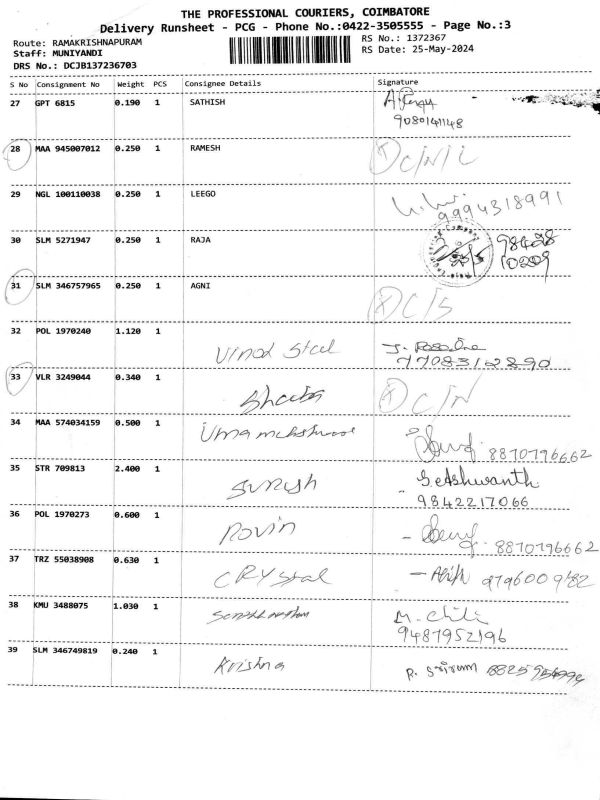 THE PROFESSIONAL COURIERS, COIMBATORE
Delivery Runsheet - PCG - Phone No.:0422-3505555 - Page No.:3
Route: RAMAKRISHNAPURAM
RS No.: 1372367
Staff: MUNIYANDI
RS Date: 25-May-2024
DRS No.: DCJB137236703
S No Consignment No Weight PCS Consignee Details Signature
27 GPT 6815 0.190 1 SATHISH
9080141148
28 MAA 945007012 0.250 1 RAMESH
29 NGL 100110038 0.250 1 LEEGO 9994318991
30 SLM 5271947 0.250 1 RAJA
31 SLM 346757965 0.250 1 AGNI
32 POL 1970240 1.120 1 Vinod Steel
7708312890
33 VLR 3249044 0.340 1
34 MAA 574034159 0.500 1 8870796662
35 STR 709813 2.400 1 Suresh S. Ashwanth
9842217066
36 POL 1970273 0.600 1 8870796662
37 TRZ 55038908 0.630 1 Crystal
38 KMU 3488075 1.030 1
9487952196
39 SLM 346749819 0.240 1 Krishna P. Sriram